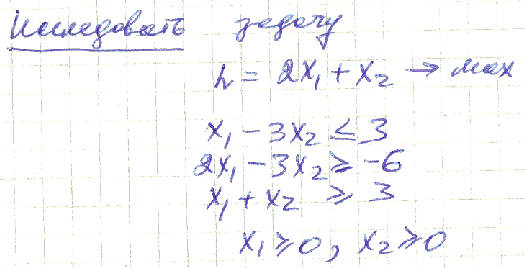 Исследовать задачу
h = 2x₁ + x₂ → max
x₁ - 3x₂ ≤ 3
2x₁ - 3x₂ ≥ -6
x₁ + x₂ ≥ 3
x₁ ≥ 0, x₂ ≥ 0